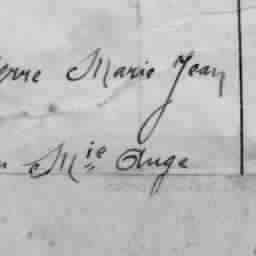 erre Marie Jean
Mie Ange